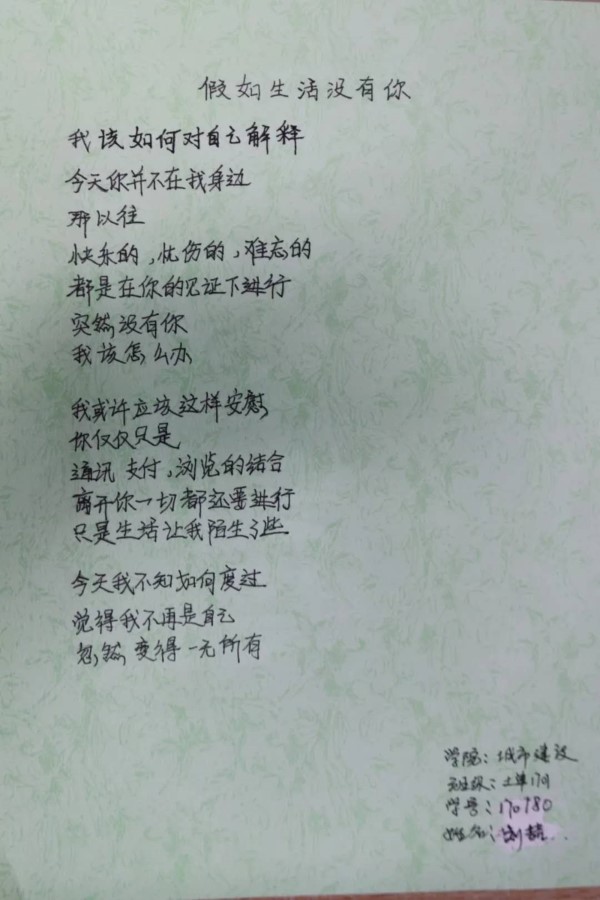 假如生活没有你
我该如何对自己解释
今天你并不在我身边
那以往
快乐的，忧伤的，难忘的
都是在你的见证下进行
突然没有你
我该怎么办
我或许应该这样安慰
你仅仅只是
通讯 支付，浏览的结合
离开你一切都还要进行
只是生活让我陌生了些
今天我不知如何度过
觉得我不再是自己
忽然变得一无所有
学院：城市建设
班级：土单1701
学号：170780
姓名：